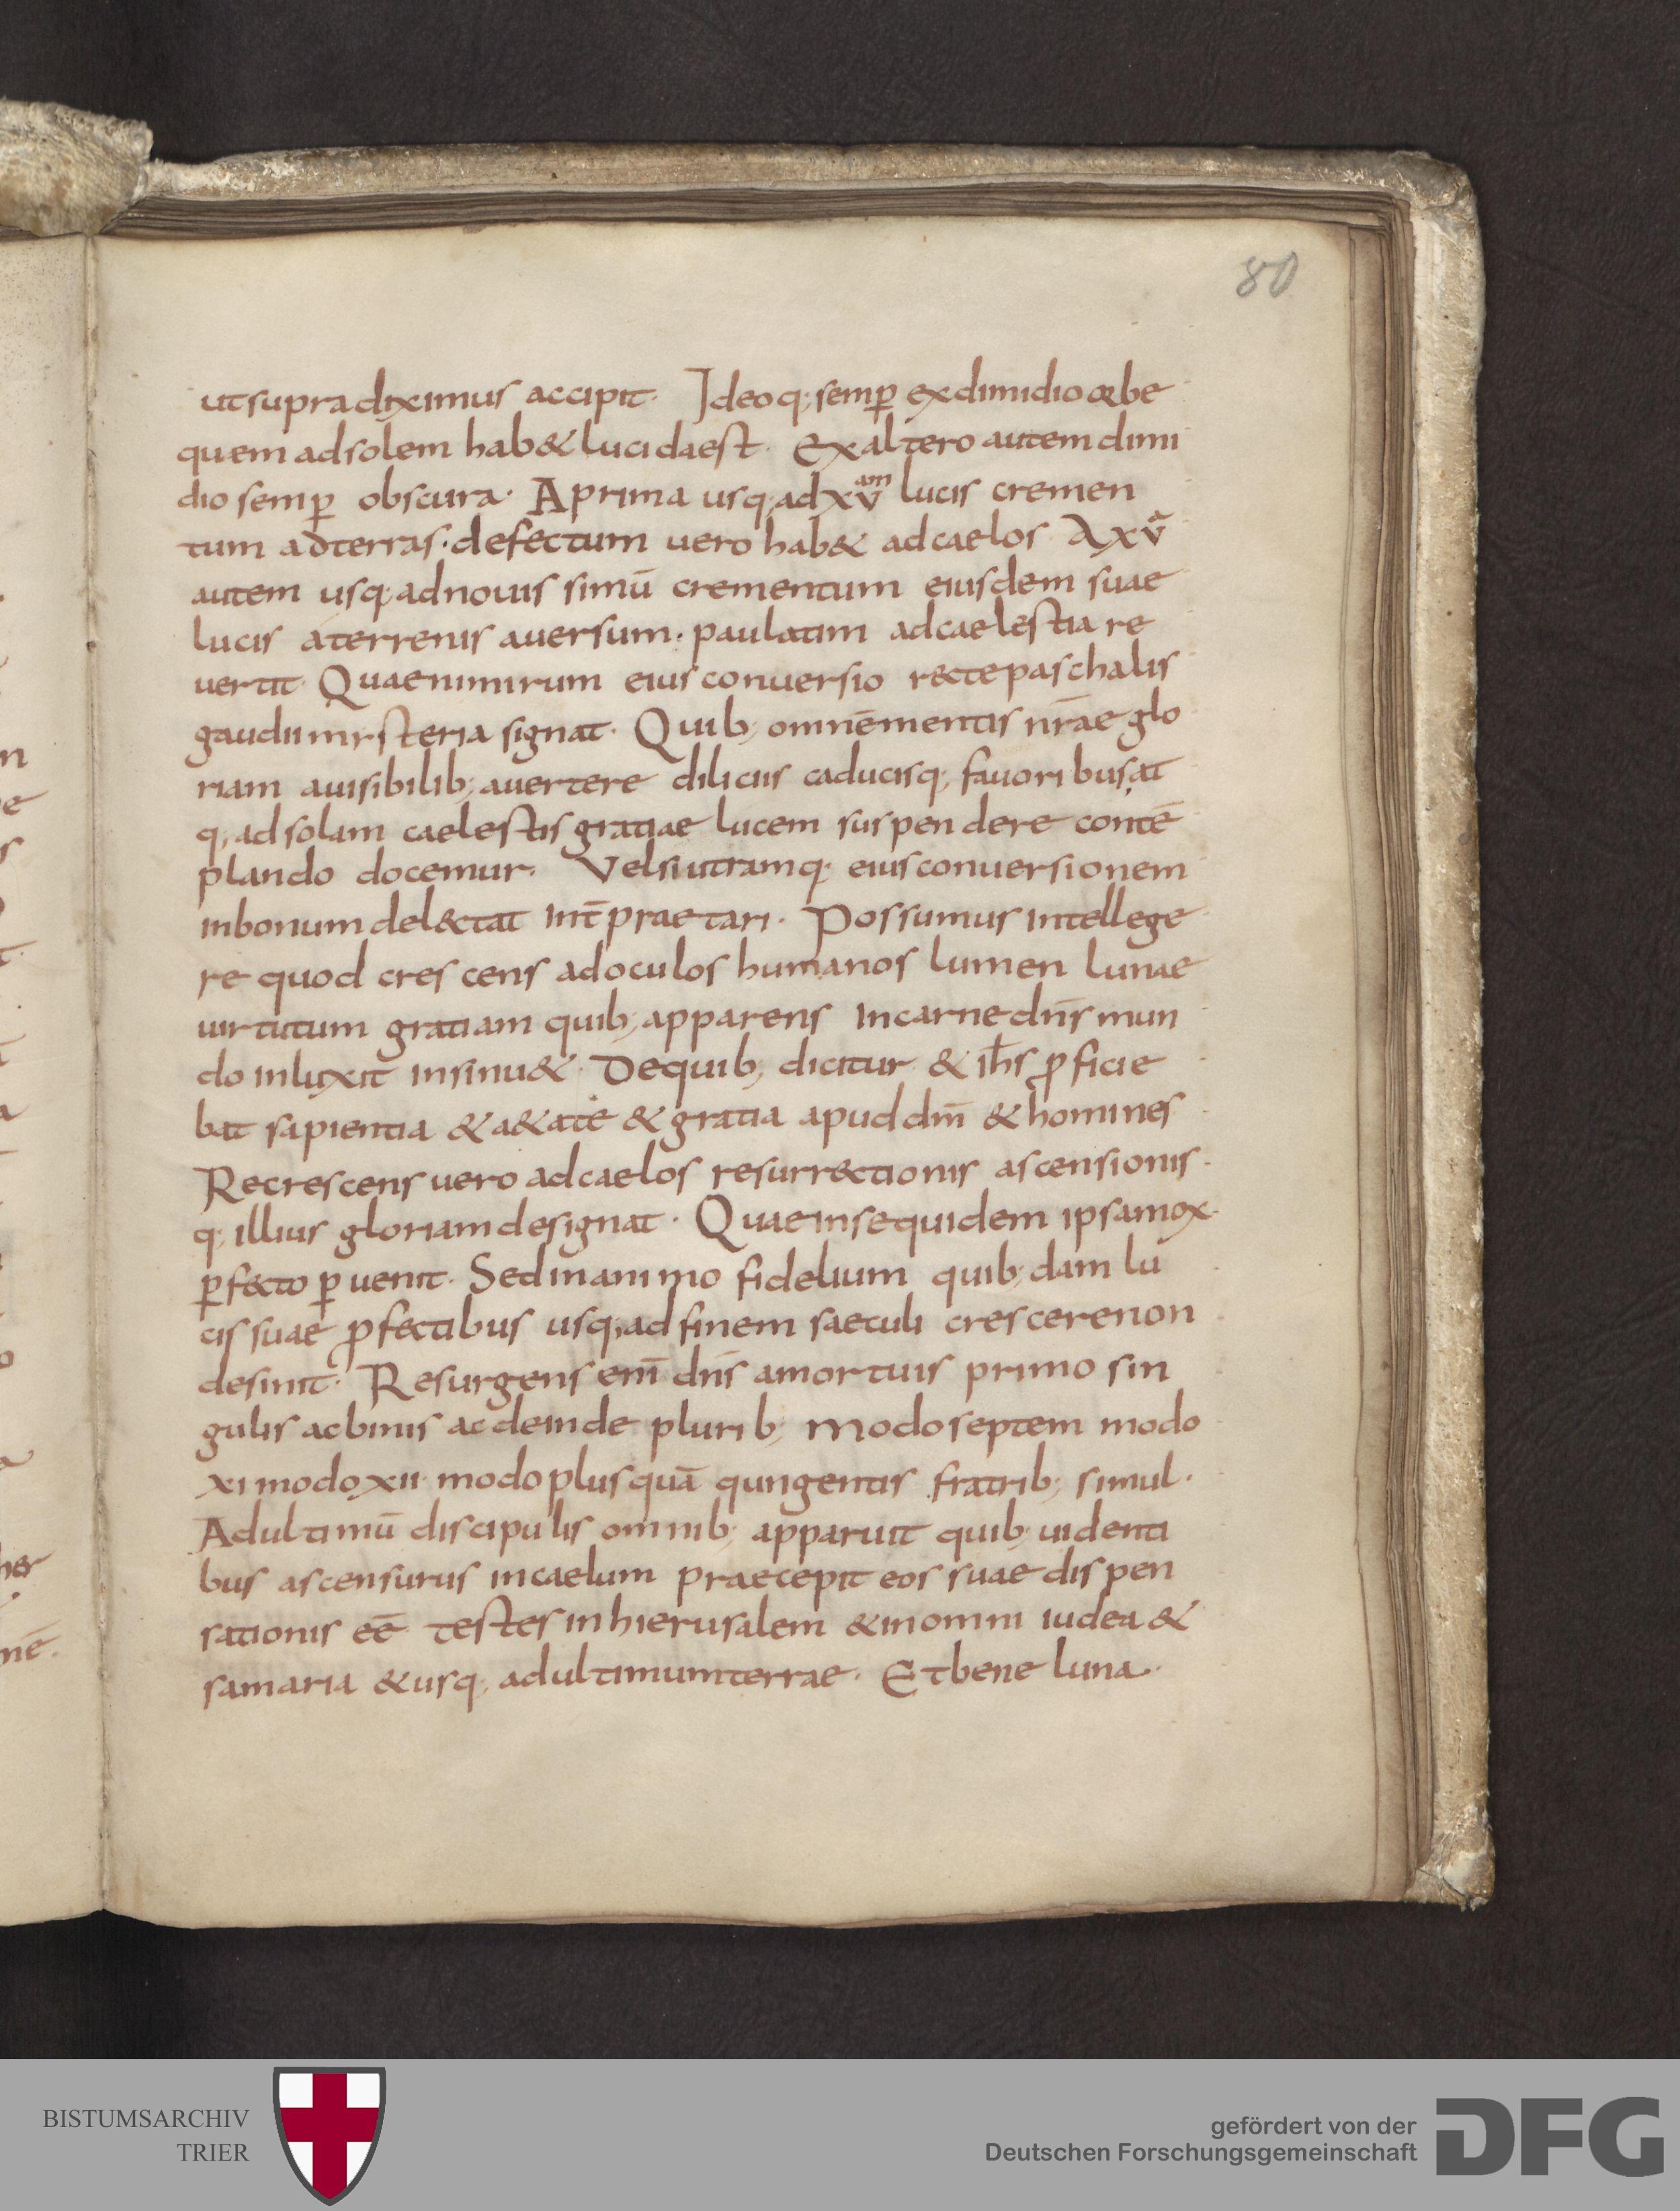 80
ut supra diximus accipit. Ideoq; semp̄ ex dimidio orbe
quem ad solem hab& lucida est. Ex altero autem dimi
dio semp̄ obscura. A prima usq; ad xv^am lucis cremen
tum ad terras. defectum vero hab& ad caelos A xv^a
autem usq; ad novis simū crementum eiusdem suae
lucis a terrenis aversum. paulatim ad caelestia re
vertit. Quae nimirum eius conversio recte paschalis
gaudii mysteria signat. Quib; omnē mentis nr̄ae glo
riam a visibilib; avertere diliciis caducisq; favoribus at
q; ad solam caelestis gratiae lucem suspendere contē
plando docemur. Vel si utramq; eius conversionem
in bonum del&tat int̄praetari. Possumus intellege
re quod crescens ad oculos humanos lumen lunae
virtutum gratiam quib; apparens in carne dn̄s mun
do inluxit insinu&. De quib; dicitur & ih̄s ꝓficie
bat sapientia & a&ate & gratia apud dm̄ & homines
Recrescens vero ad caelos resurrectionis ascensionis
q; illius gloriam designat. Quae in se quidem ipsa mox
p̄fecto p̄venit. Sed in animo fidelium quib;dam lu
cis suae ꝓfectibus usq; ad finem saeculi crescere non
desinit. Resurgens enī dn̄s a mortuis primo sin
gulis ac binis ac deinde plurib; modo septem modo
xi modo xii modo plus quā qungentis fratrib; simul.
Ad ultimū discipulis omnib; apparuit quib; videnti
bus ascensurus in caelum praecepit eos suae dispen
sationis eē testes in hierusalem & in omni iudea &
samaria & usq; ad ultimum terrae. Et bene luna
BISTUMSARCHIV
TRIER
gefördert von der
Deutschen Forschungsgemeinschaft
DFG